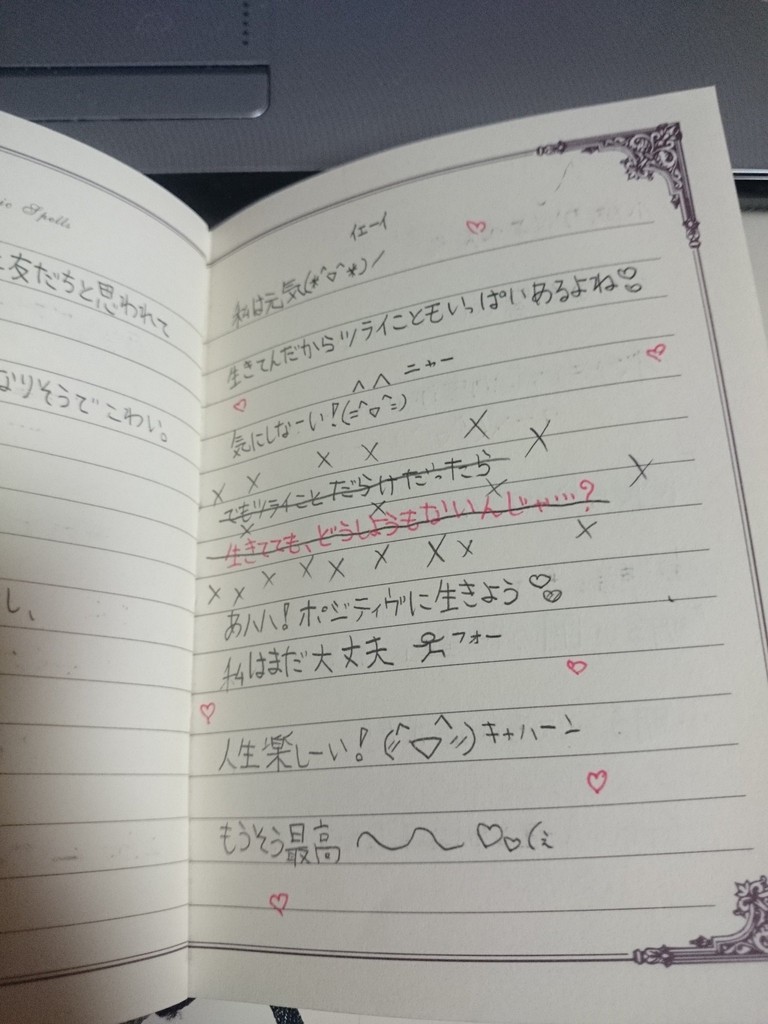 ic Spells
友だちと思われて
なりそうでこわい。
し、
イェーイ
私は元気(*^▽^*)/
生きてんだからツライこともいっぱいあるよね♡♡
ニャー
気にしなーい!(=^▽^=)
でもツライことだらけだったら
生きてても、どうしようもないんじゃ…?
あハハ!ポジティヴに生きよう♡♡
私はまだ大丈夫 フォー
人生楽しーい!(〃^▽^〃)キャハーン
もうそう最高 〜〜 ♡♡(ぇ